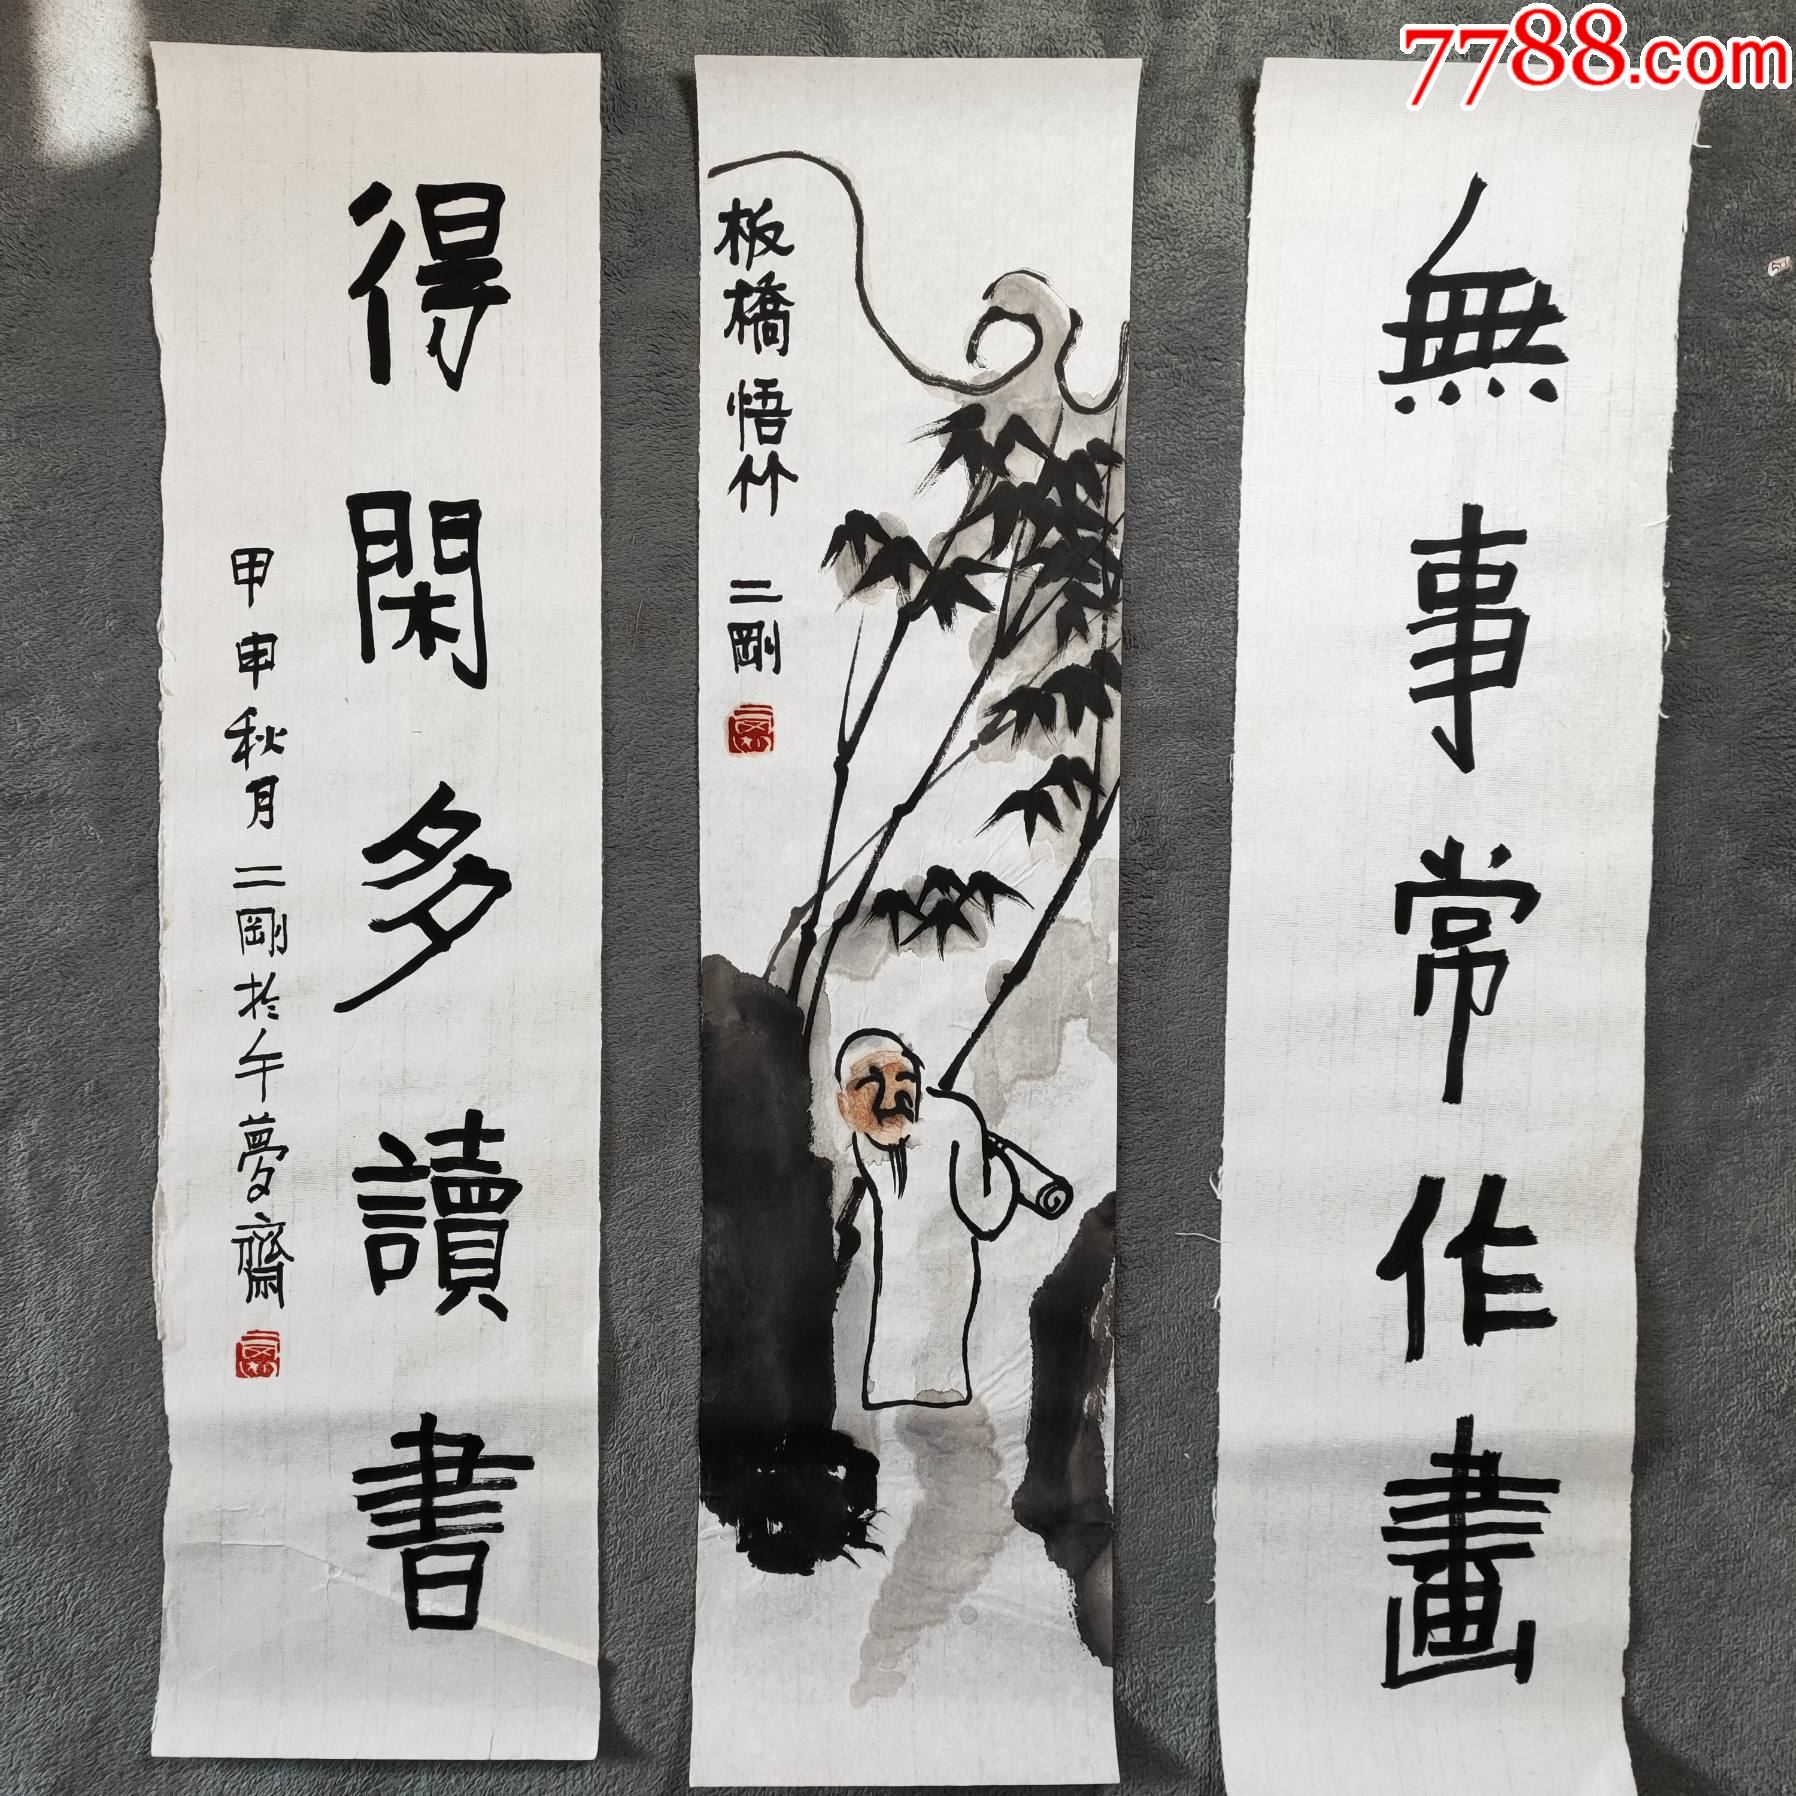 7788.com
無事常作畫
板橋悟竹 二剛
得閑多讀書
甲申秋月二剛於午夢齋